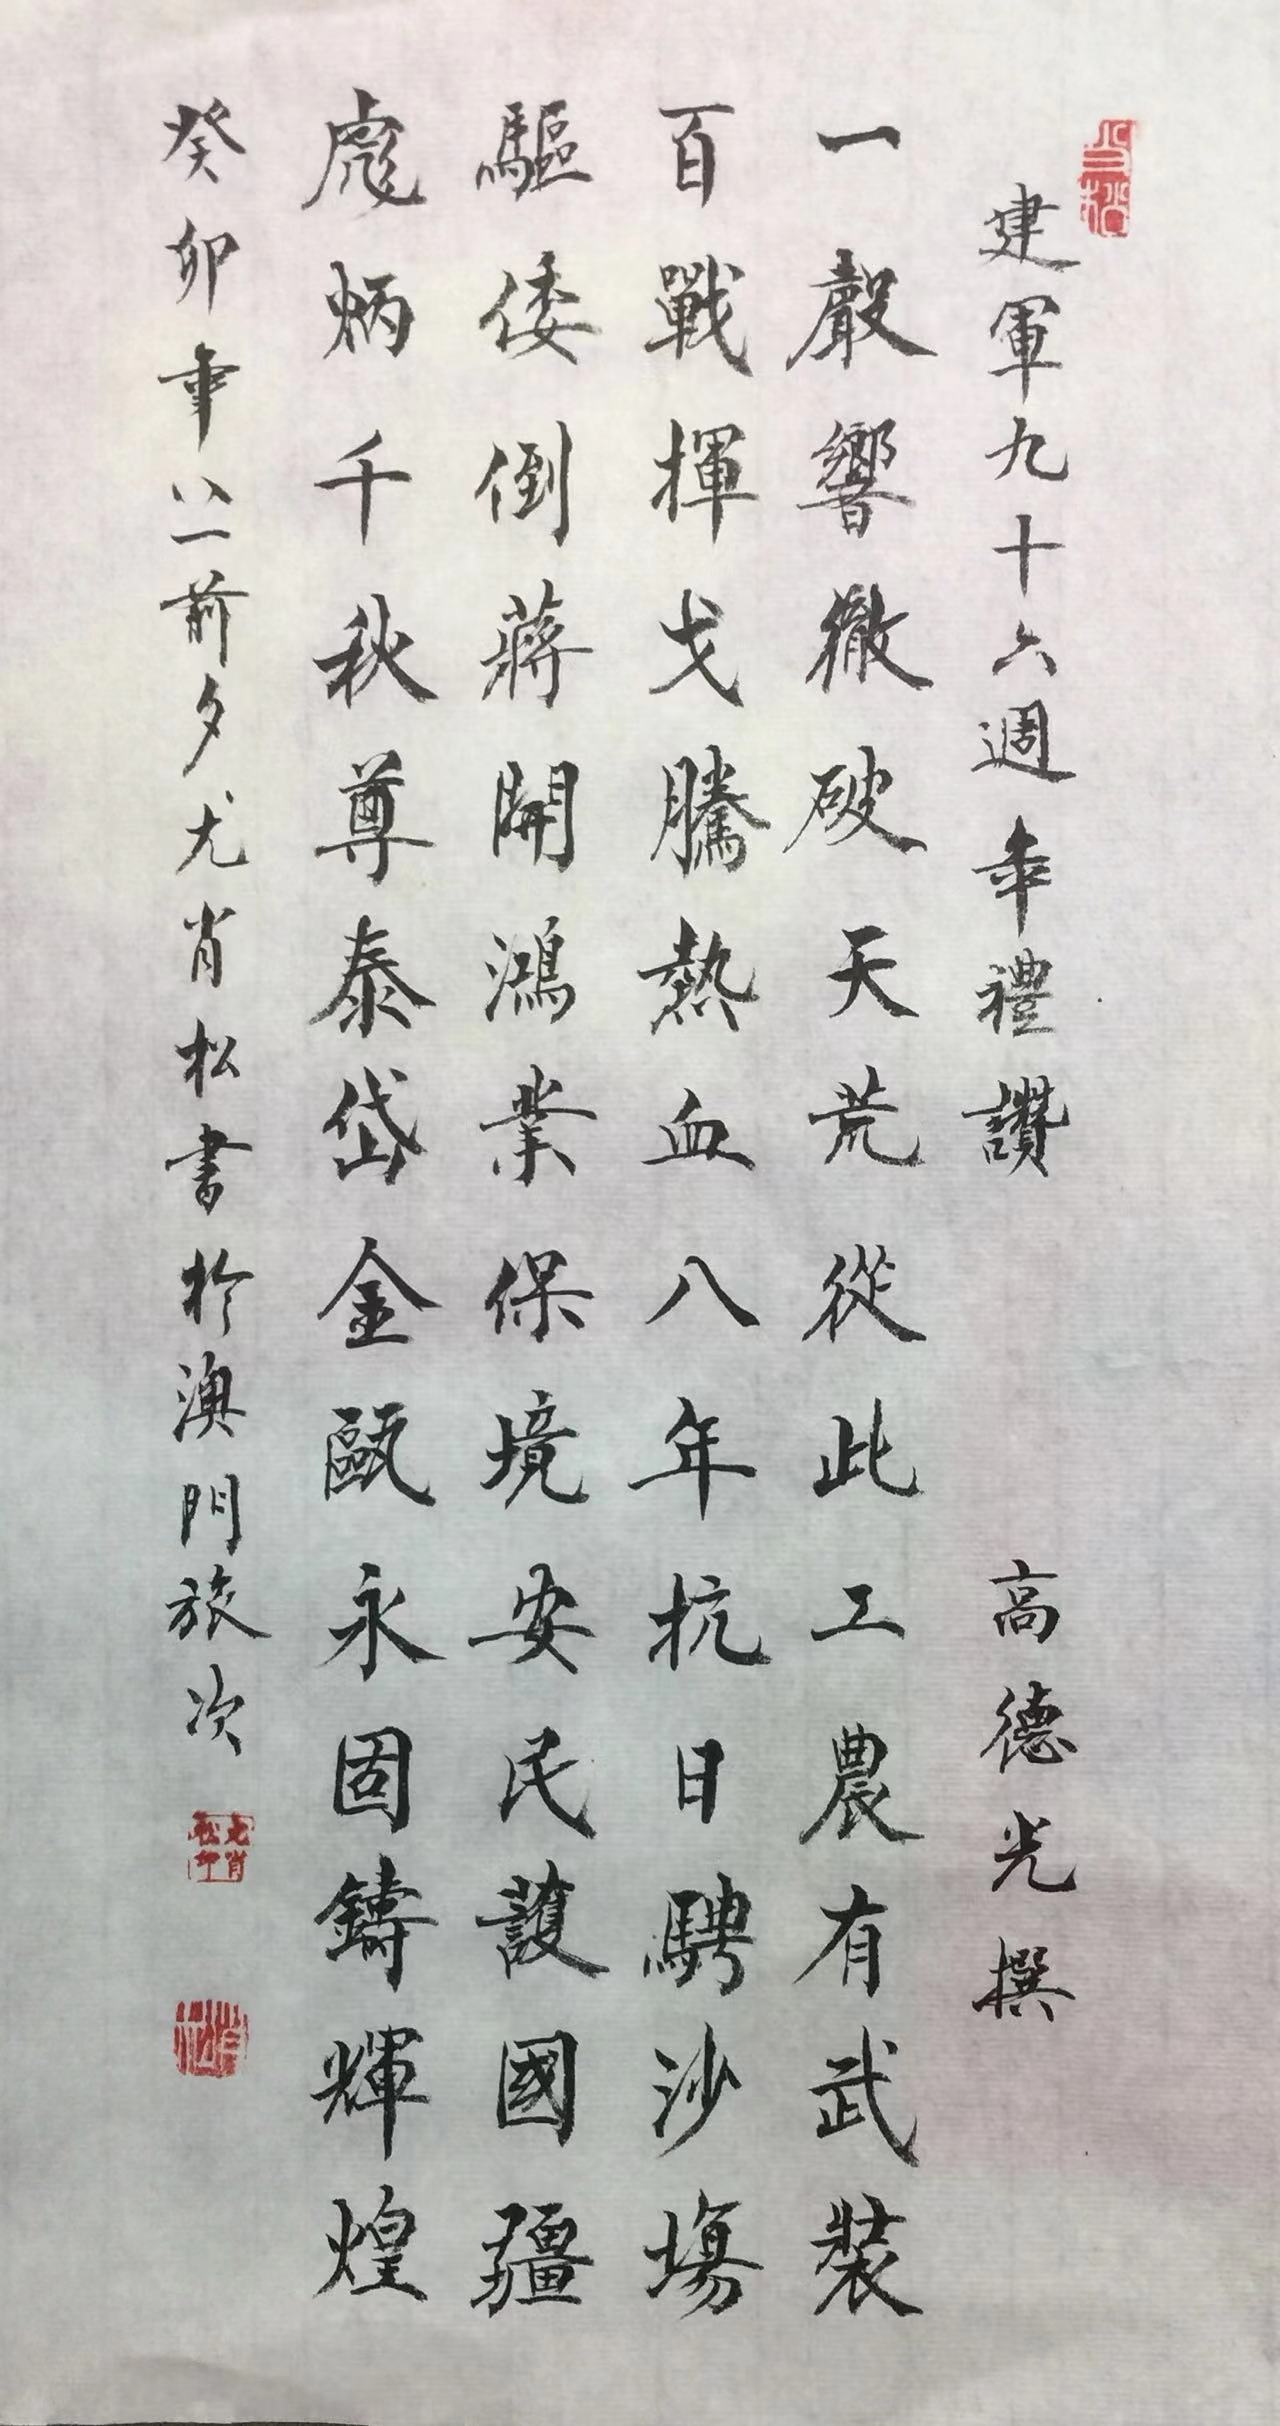 建軍九十六週年禮讚 高德光撰
一聲響徹破天荒從此工農有武裝
百戰揮戈騰熱血八年抗日騁沙場
驅倭倒蔣開鴻業保境安民護國疆
彪炳千秋尊泰岱金甌永固鑄輝煌
癸卯年八一前夕尤肖松書於澳門旅次
尤肖松印